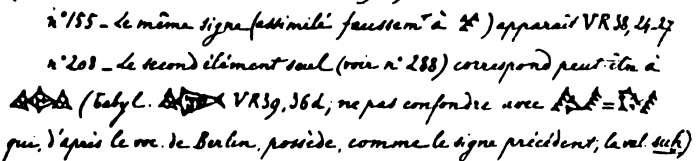 n° 155 _ Le même signe (assimilé faussemt à ) apparait VR 38, 24-27
n° 208 _ Le second élément seul (voir n° 288) correspond peut-être à
(babyl. VR 39, 36d; ne pas confondre avec =
qui, d'après le voc. de Berlin, possède, comme le signe précédent, la val. suh)